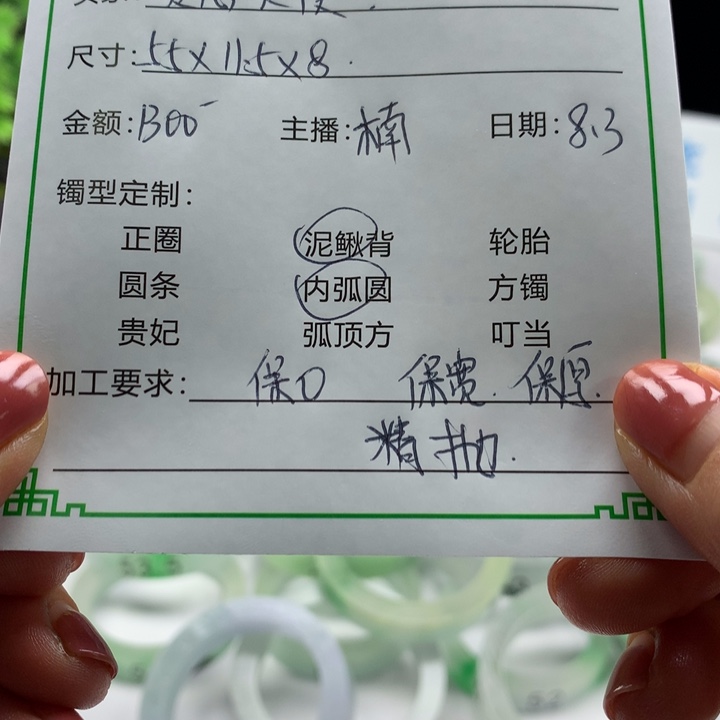 尺寸:55×11.5×8
金额:1300 主播:楠 日期:8.3
镯型定制:
正圈 泥鳅背 轮胎
圆条 内弧圆 方镯
贵妃 弧顶方 叮当
加工要求: 保口 保宽. 保厚.
精抛.